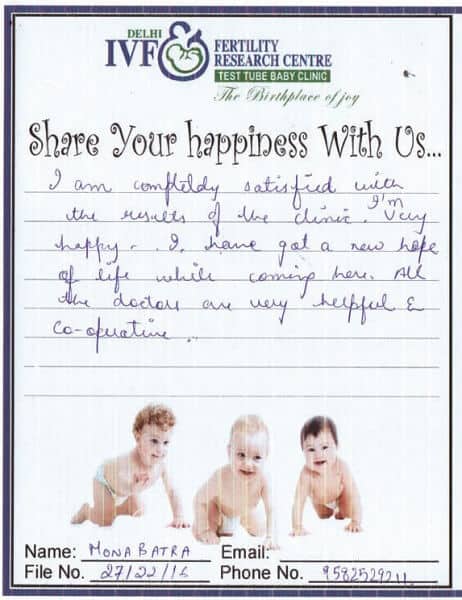 DELHI
IVF & FERTILITY
RESEARCH CENTRE
TEST TUBE BABY CLINIC
The Birthplace of joy
Share Your happiness With Us...
I am completely satisfied with
the results of the clinic. I'm Very
happy. I have got a new hope
of life while coming here. All
the doctors are very helpful &
co-operative..
Name: MONA BATRA Email:
File No. 27/22/16 Phone No. 9582529211